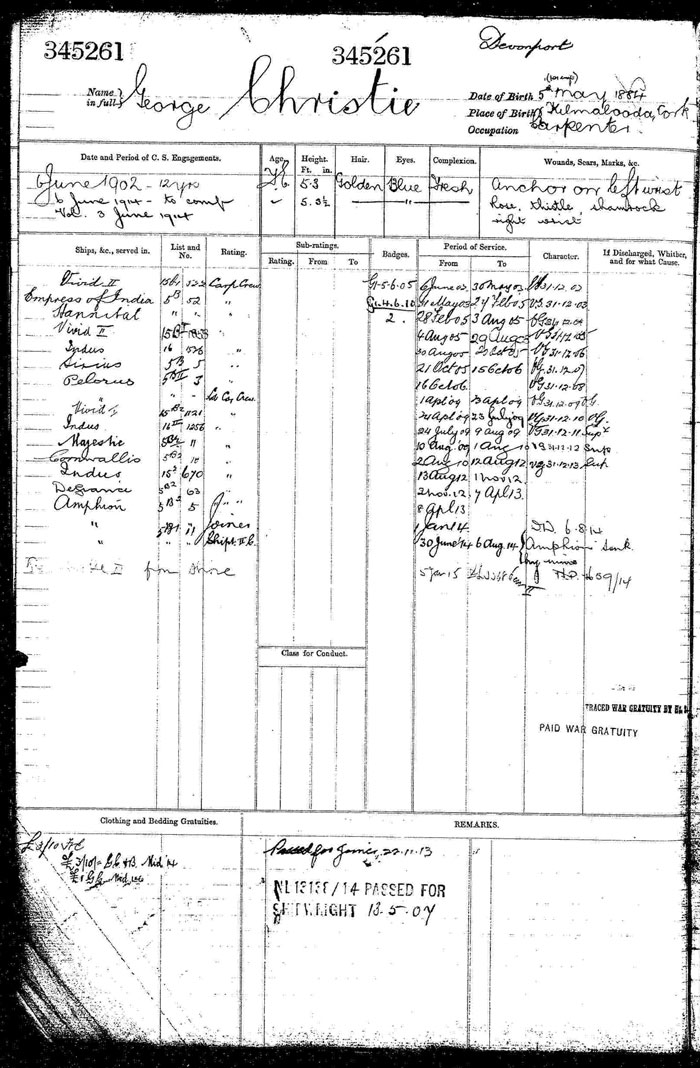 345261
345261
Devonport
Name in full George Christie
Date of Birth 5th May 1884
Place of Birth Kilmalooda, Cork
Occupation Carpenter
Date and Period of C. S. Engagements. Age. Height. Ft. in. Hair. Eyes. Complexion. Wounds, Scars, Marks, &c.
6 June 1902 - 12 yrs 5.3 Golden Blue Fresh Anchor on left wrist
6 June 1914 - to comp 5.3½ rose, thistle, shamrock
Vol. 3 June 1914 right wrist
Ships, &c., served in. List and No. Rating. Sub-ratings. Rating. From To Badges. Period of Service. From To Character. If Discharged, Whither, and for what Cause.
Vivid II 15B1 322 Carp Crew G1-5.6.05 6 June 02 30 May 03 VG 31.12.02
Empress of India 5B 52 " G 1.4.6.10 31 May 03 27 Feb 05 VG. 31.12.03
Hannibal " " " 2. 28 Feb 05 3 Aug 05 VG 31.12.04
Vivid II " 4 Aug 05 29 Aug 05 VG 31.12.05
Indus 16 " 30 Aug 05 20 Oct 05 VG 31.12.06
Sirius 5B 5 " 21 Oct 05 15 Oct 06 VG. 31.12.07
Pelorus 5BII 3 " 16 Oct 06 VG 31.12.08
" " - Ldg Carp Crew. 1 Apl 09 VG. 31.12.09 VG.
Vivid II 15B2 1121 " 24 Apl 09 23 July 09 VG 31.12.10 VG.
Indus 16II 1256 " 24 July 09 9 Aug 09 VG 31.12.11 Supr
Majestic 5B2 11 " 10 Aug 09 1 Aug 10 VG 31.12.12 Supr
Cornwallis 5B2 10 " 2 Aug 10 12 Aug 12 VG 31.12.13 Sup.
Indus 152 670 " 13 Aug 12 1 Nov 12.
Defiance 5B2 63 " 2 Nov. 12 7 Apl 13.
Amphion 5B2 5 " 8 Apl 13.
" Joiner 1 Jan 14. DD. 6.8.14
" " " Shipt. II C. 30 June 14 6 Aug. 14 Amphion sunk
by mine
from Shore 5 Jan 15 N.P. 659/14
Class for Conduct.
TRACED WAR GRATUITY
PAID WAR GRATUITY
Clothing and Bedding Gratuities. REMARKS.
Passed for Joiner, 22.11.13
NL 13138/14 PASSED FOR
SHIPWRIGHT 13.5.07